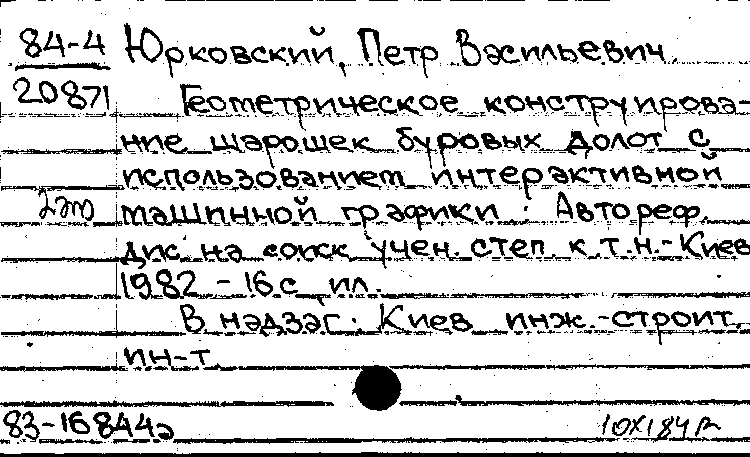 84-4 Юрковский, Петр Васильевич.
20871 Геометрическое конструирова-
ние шарошек буровых долот с
использованием интерактивной
машинной графики : Автореф.
дис. на соиск. учен. степ. к.т.н.-Киев
1982 - 16 с ил.
В надзаг.: Киев инж.-строит.
ин-т.
83-16844а